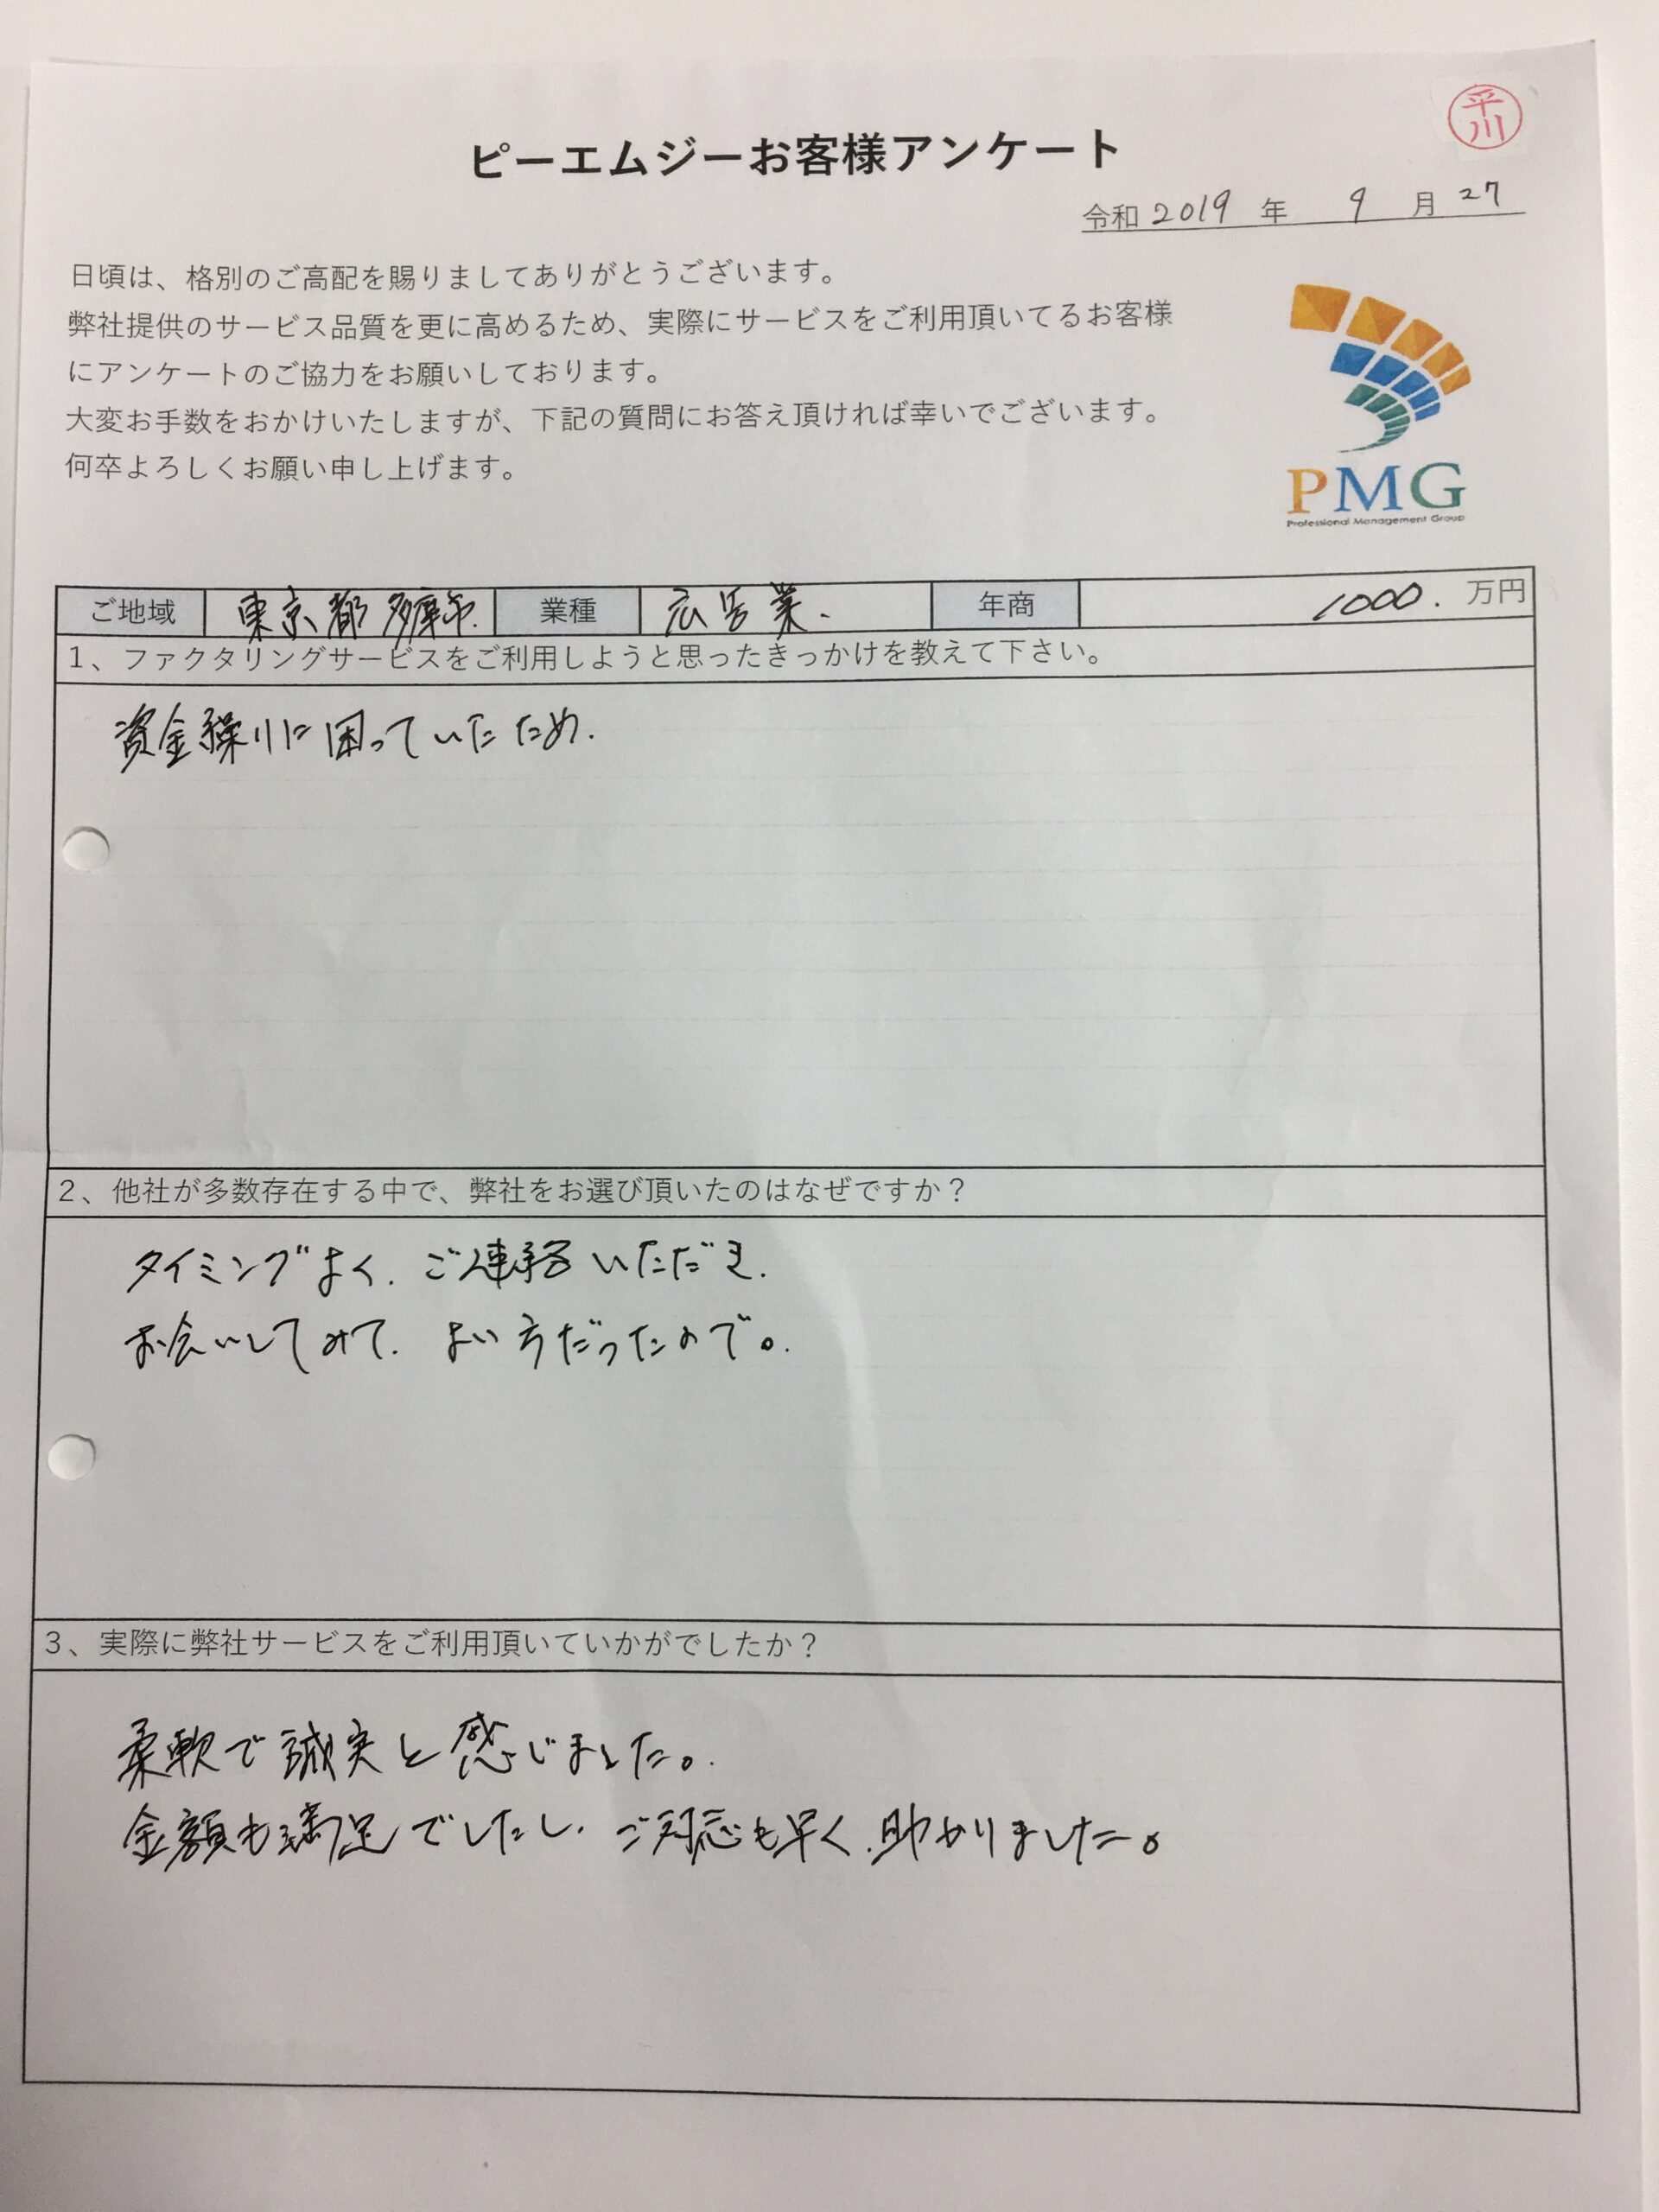 平川
ピーエムジーお客様アンケート
令和 2019 年 9 月 27
日頃は、格別のご高配を賜りましてありがとうございます。
弊社提供のサービス品質を更に高めるため、実際にサービスをご利用頂いてるお客様
にアンケートのご協力をお願いしております。
大変お手数をおかけいたしますが、下記の質問にお答え頂ければ幸いでございます。
何卒よろしくお願い申し上げます。
PMG
Professional Management Group
ご地域 東京都多摩市. 業種 広告業. 年商 1000. 万円
1、ファクタリングサービスをご利用しようと思ったきっかけを教えて下さい。
資金繰りに困っていたため.
2、他社が多数存在する中で、弊社をお選び頂いたのはなぜですか？
タイミングよく. ご連絡いただき.
お会いしてみて. よい方だったので。.
3、実際に弊社サービスをご利用頂いていかがでしたか？
柔軟で誠実と感じました。.
金額も満足でしたし. ご対応も早く.助かりました。